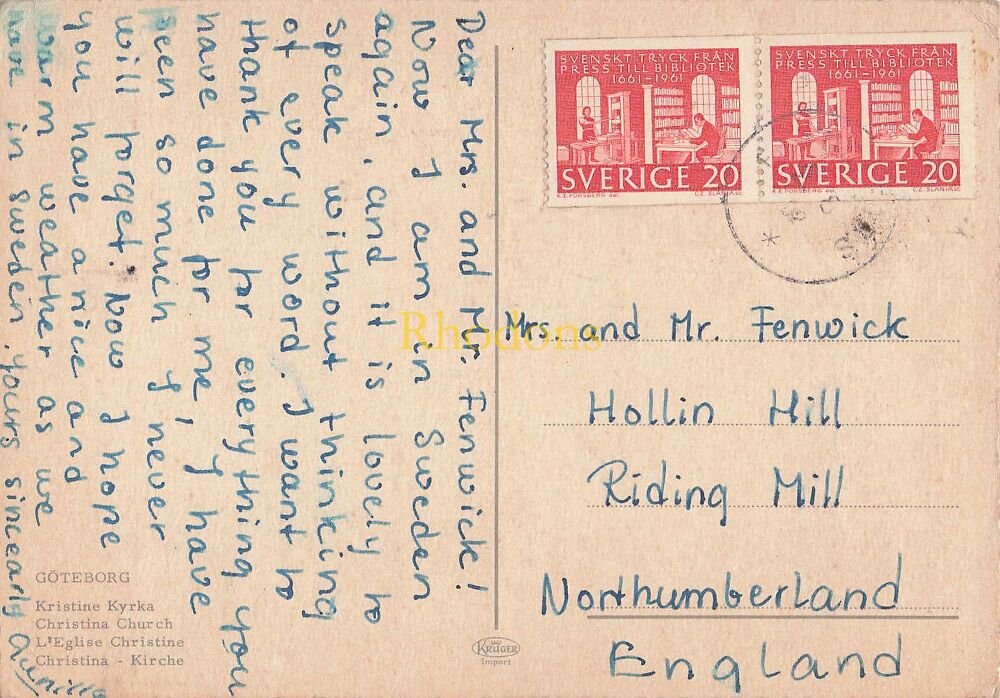 Dear Mrs. and Mr. Fenwick!
Now I am in Sweden
again, and it is lovely to
speak without thinking
of every word. I want to
thank you for everything you
have done for me, I have
been so much I never
will forget. Now I hope
you have a nice and
warm weather as we
have in Sweden. Yours sincearly Gunilla
GÖTEBORG
Kristine Kyrka
Christina Church
L'Eglise Christine
Christina - Kirche
SVENSKT TRYCK FRÅN
PRESS TILL BIBLIOTEK
1661-1961
SVERIGE 20
K.E. FORSBERG del. CZ. SLANIA sc.
SVENSKT TRYCK FRÅN
PRESS TILL BIBLIOTEK
1661-1961
SVERIGE 20
K.E. FORSBERG del. CZ. SLANIA sc.
Rhodons
Mrs. and Mr. Fenwick
Hollin Hill
Riding Mill
Northumberland
England
KRÜGER
Import